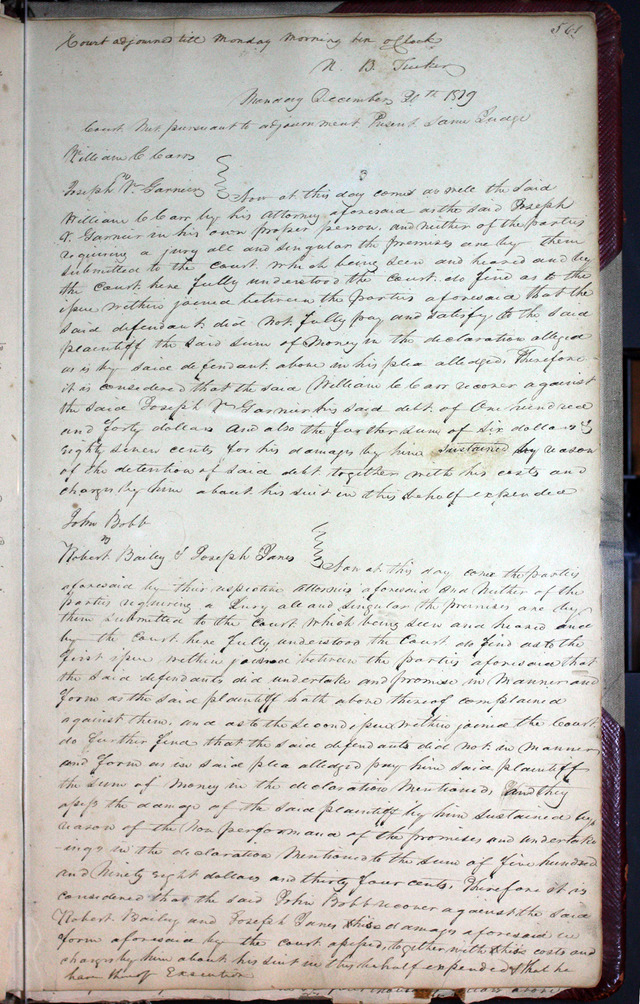 561
Court adjourned till Monday Morning ten oClock
N. B. Tucker
Monday December 20th 1819
Court Met pursuant to adjournment Present Same Judge
William C Carr
vs
Joseph V. Garnier } Now at this day comes as well the said
William C Carr by his Attorney aforesaid as the said Joseph
V. Garnier in his own proper person, and neither of the parties
requiring a jury all and singular the premises are by them
submitted to the court. which being seen and heared and by
the court here fully understood the court do find as to the
issue within joined between the parties aforesaid that the
said defendant did not fully pay and satisfy to the said
plaintiff the said sum of Money in the declaration alleged
as is by said defendant above in his plea alledged, Therefore
it is considered that the said William C Carr recover against
the said Joseph V Garnier his said debt of One hundred
and forty dollars and also the further sum of Six dollars &
Eighty seven cents for his damages by him Sustained by reason
of the detention of said debt together with his costs and
charges by him about his suit in this behalf expended
John Bobb
vs
Robert Bailey & Joseph Janes } Now at this day come the parties
aforesaid by their respective Attornies aforesaid and Neither of the
parties requiring a Jury all and singular the premises are by
them submitted to the court which being seen and heared and
by the court here fully understood the court do find as to the
first issue within joined between the parties aforesaid that
the said defendants did undertake and promise in Manner and
form as the said plaintiff hath above thereof complained
against them. and as to the second issue within joined the Court
do further find that the said defendants did not in Manner
and form as in said plea alledged pay him said plaintiff
the sum of Money in the declaration Mentioned, and they
assess the damage of the said plaintiff by him sustained by
reason of the Non performance of the promises and undertake
-ings in the declaration Mentioned to the sum of five hundred
and Ninety eight dollars and thirty four cents, Therefore it is
considered that the said John Bobb recover against the said
Robert Bailey and Joseph Janes his damages aforesaid in
form aforesaid by the court assessed, together with his costs and
charges by him about his suit in this behalf expended & that he
have thereof Execution